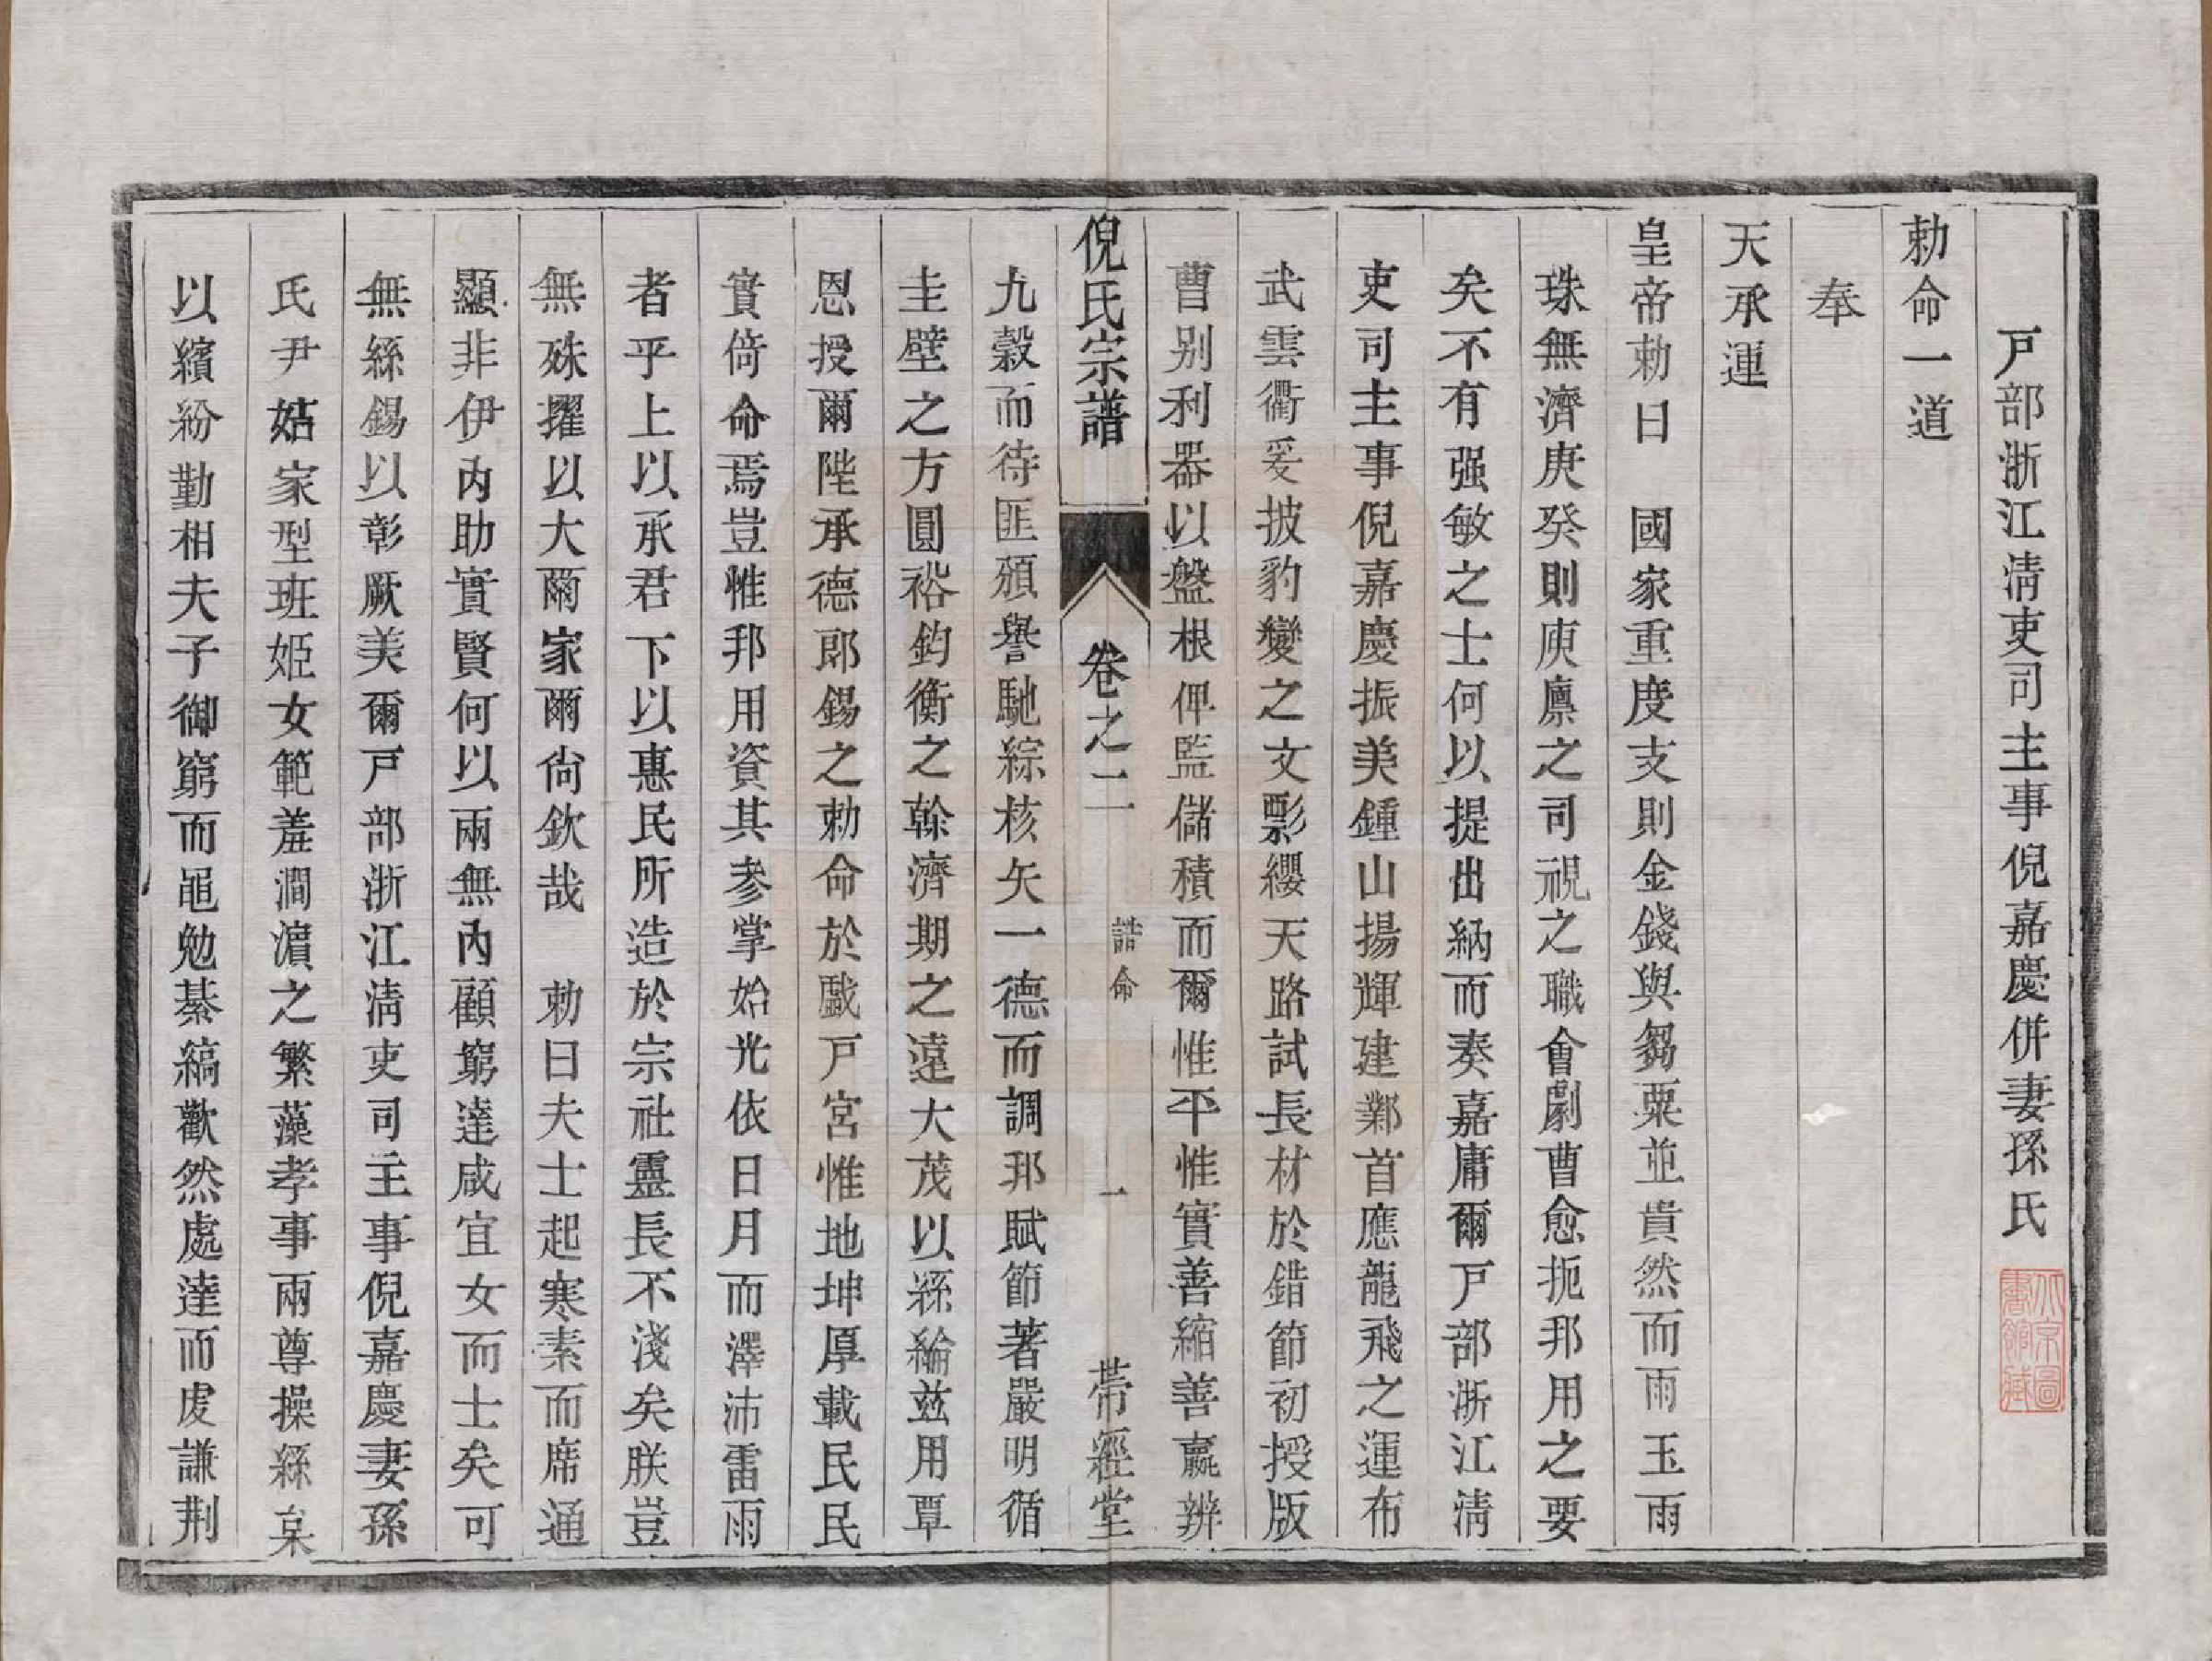 戸部浙江淸吏司主事倪嘉慶併妻孫氏
勅命一道
奉
天承運
皇帝勅曰　國家重度支則金錢與芻粟並貴然而雨玉雨
珠無濟庚癸則庾廪之司視之職會劇曹愈扼邦用之要
矣不有强敏之士何以提出納而奏嘉庸爾戸部浙江淸
吏司主事倪嘉慶振美鍾山揚輝建鄴首應龍飛之運布
武雲衢爰披豹變之文影纓天路試長材於錯節初授版
曹别利器以盤根俾監儲積而爾惟平惟實善縮善贏辨
倪氏宗譜
卷之二
誥命
一
帶經堂
九穀而待匪頒譽馳綜核矢一德而調邦賦節著嚴明循
圭壁之方圓裕鈞衡之斡濟期之遠大茂以絲綸玆用覃
恩授爾陛承德郎錫之勅命於戲戸宮惟地坤厚載民民
實倚命焉豈惟邦用資其參掌始光依日月而澤沛雷雨
者乎上以承君下以惠民所造於宗社靈長不淺矣朕豈
無殊擢以大爾家爾尙欽哉　勅曰夫士起寒素而席通
顯非伊内助實賢何以兩無內顧窮達咸宜女而士矣可
無絲錫以彰厥美爾戸部浙江淸吏司主事倪嘉慶妻孫
氏尹姞家型班姬女範羞澗濵之繁藻孝事兩尊操絲枲
以繽紛勤相夫子御窮而黽勉綦縞歡然處達而虔謙荆
北京圖書館藏